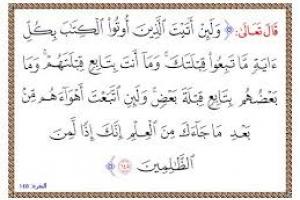 قَالَ تَعَالَىٰ: ﴿ وَلَئِنْ أَتَيْتَ ٱلَّذِينَ أُوتُوا۟ ٱلْكِتَٰبَ بِكُلِّ
ءَايَةٍ مَّا تَبِعُوا۟ قِبْلَتَكَ ۚ وَمَآ أَنتَ بِتَابِعٍ قِبْلَتَهُمْ ۚ وَمَا
بَعْضُهُم بِتَابِعٍ قِبْلَةَ بَعْضٍ ۚ وَلَئِنِ ٱتَّبَعْتَ أَهْوَآءَهُم مِّنۢ
بَعْدِ مَا جَآءَكَ مِنَ ٱلْعِلْمِ ۙ إِنَّكَ إِذًا لَّمِنَ
ٱلظَّٰلِمِينَ ﴿١٤٥﴾ ﴾
البقرة: